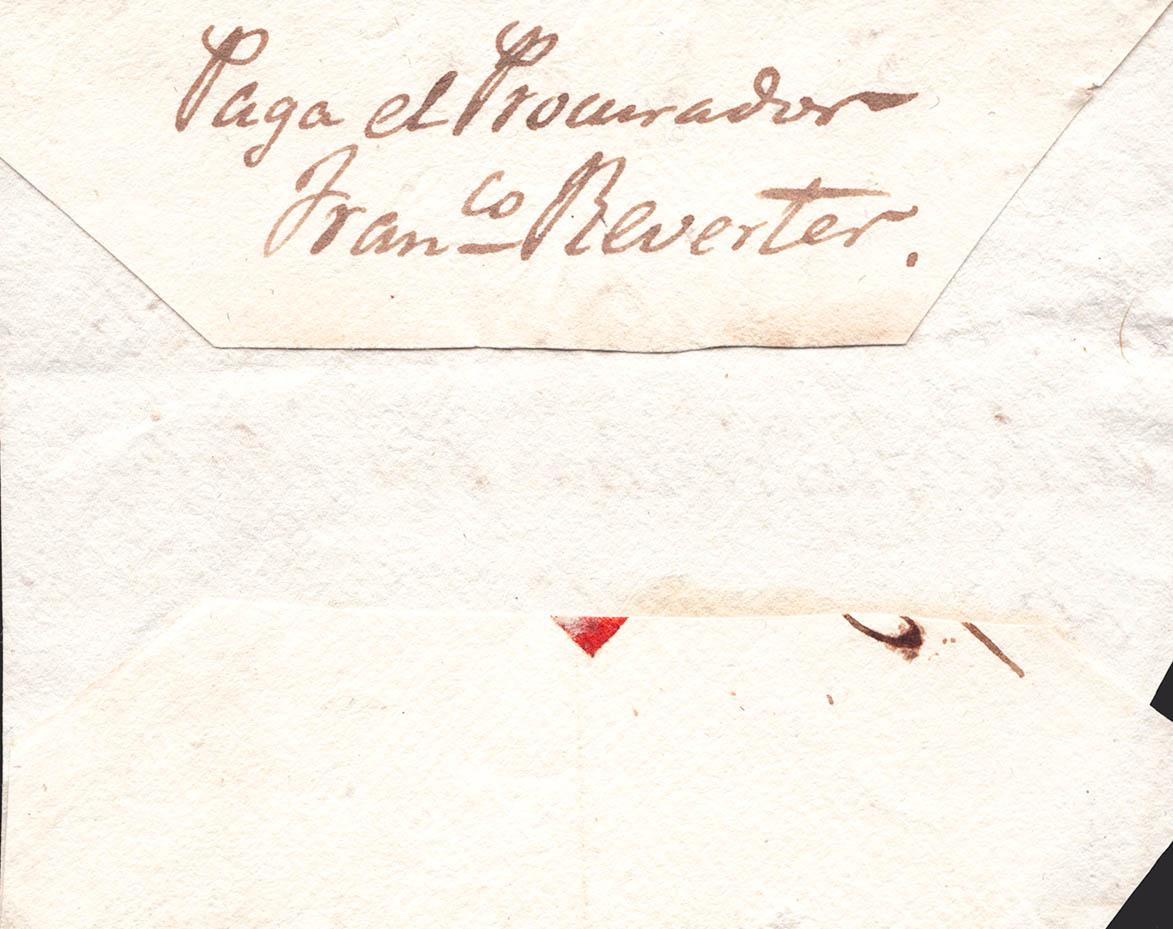 Paga el Procurador
Fran.co Reverter.